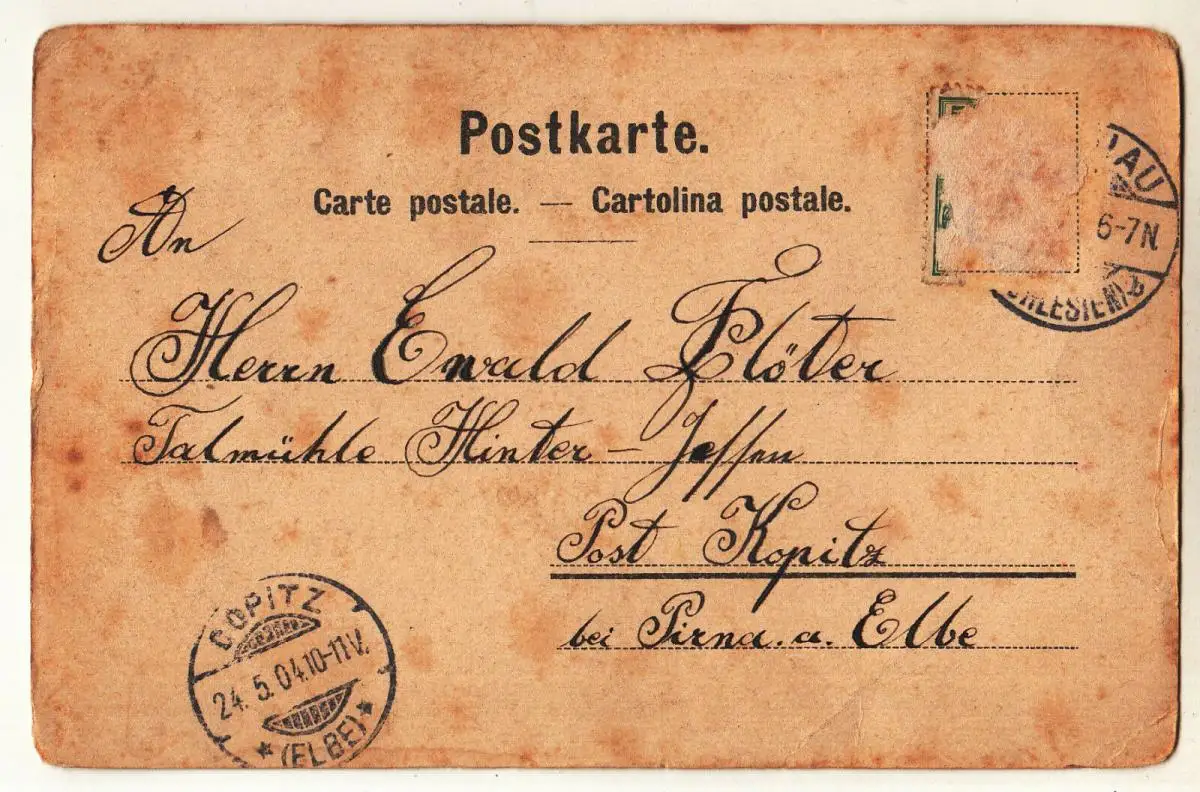 Postkarte.
Carte postale. — Cartolina postale.
An
Herrn Ewald Flöter
Talmühle Hinter-Jessen
Post Kopitz
bei Pirna. a. Elbe
6-7N.
COPITZ
24.5.04.10-11V.
*(ELBE)*